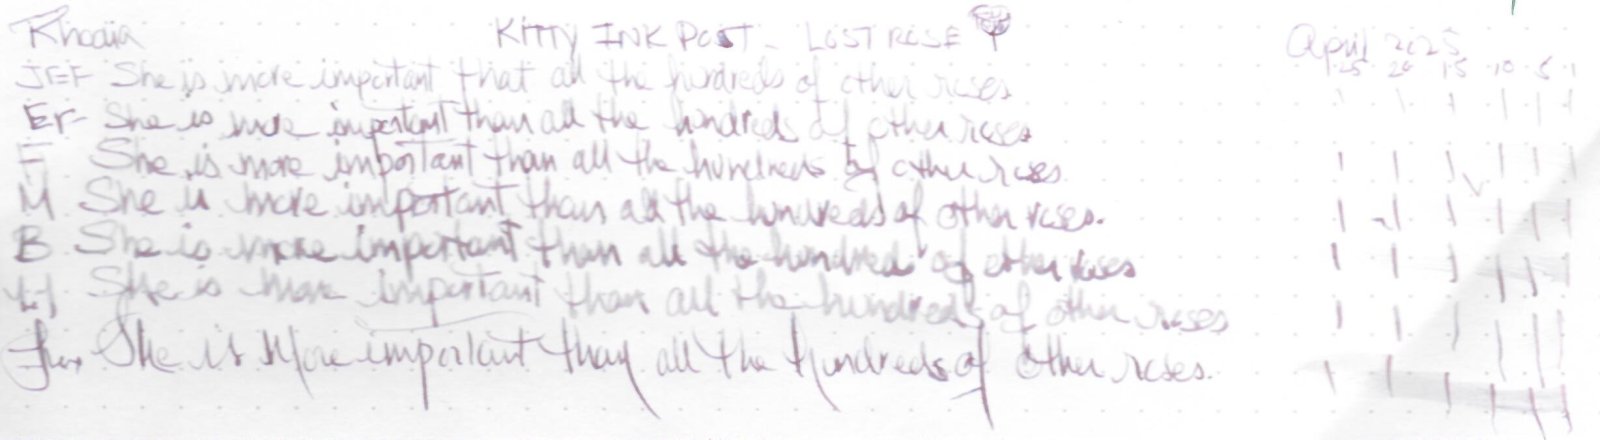 Rhodia KITTY INK POST - LOST ROSE April 2025
25 20 15 10 5 1
JEF She is more important that all the hundreds of other roses
EF She is more important than all the hundreds of other roses
F She is more important than all the hundreds of other roses
M She is more important than all the hundreds of other roses.
B She is more important than all the hundreds of other roses
She is more important than all the hundreds of other roses
She is More important than all the hundreds of other roses.